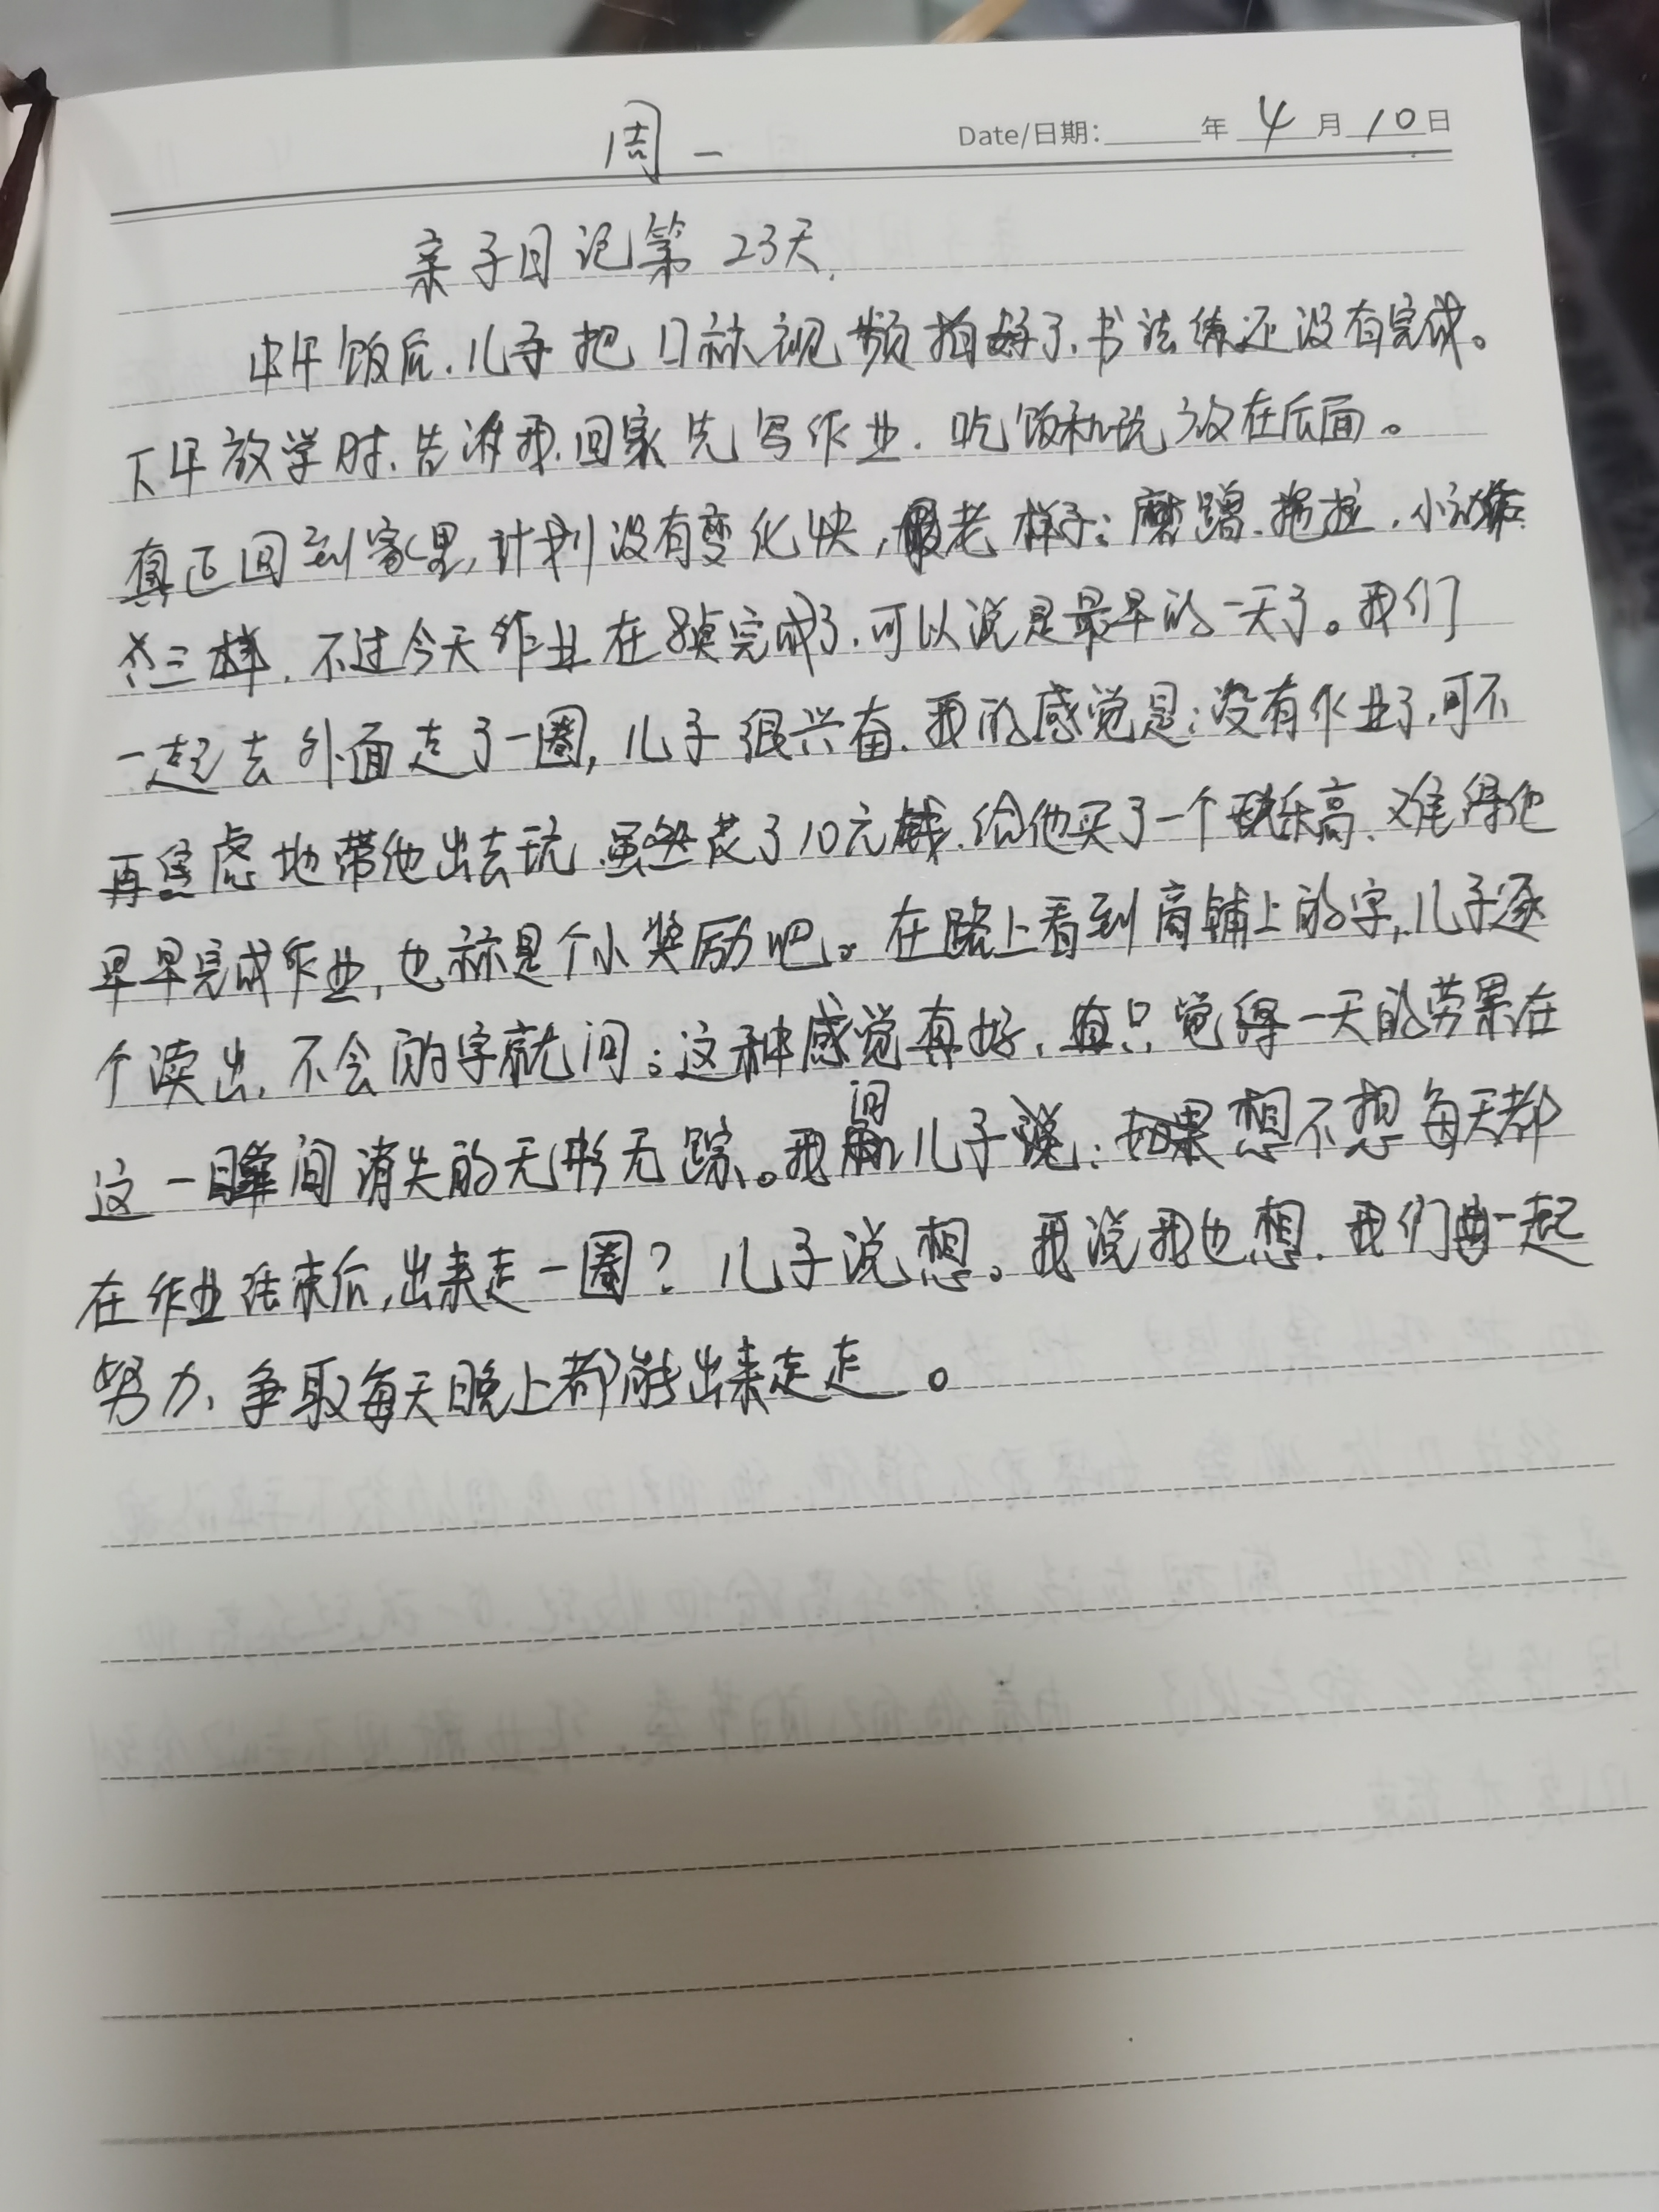 周一 Date/日期: 年 4 月 10 日
亲子日记第 23天.
中午饭后,儿子把口视频拍好了,书法练还没有完成。
下午放学时,告诉我,回家先写作业,吃饭和玩放在后面。
真正回到家里,计划没有变化快,老样子:磨蹭、拖拉,小动作
三样,不过今天作业在8点完成了,可以说是最早的一天了。我们
一起去外面走了一圈,儿子很兴奋,我的感觉是:没有作业了,可不
再焦虑地带他出去玩,虽然花了10元钱,给他买了一个乐高,难得他
早早完成作业,也算是个小奖励吧。在路上看到商铺上的字,儿子逐
个读出,不会的字就问;这种感觉真好,只觉得一天的劳累在
这一瞬间消失的无形无踪。我问儿子:想不想每天都
在作业结束后,出来走一圈?儿子说想。我说我也想,我们要一起
努力,争取每天晚上都能出来走走。